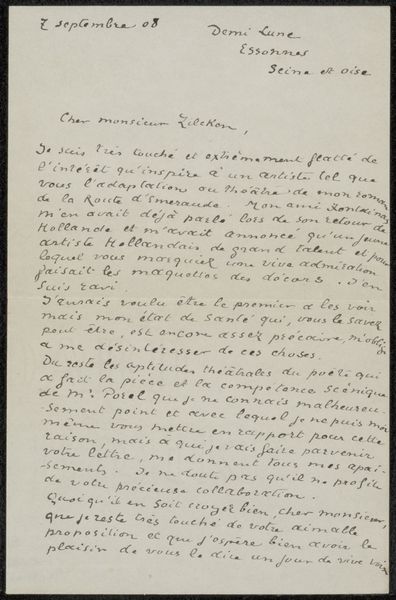 7 septembre 08
Demi Lune
Essonnes
Seine et Oise
Cher monsieur Zilcken,
Je suis très touché et extrêmement flatté de
l'intérêt qu'inspire à un artiste tel que
vous l'adaptation au théâtre de mon roman
de la Route d'Emeraude. Mon ami Fontainas
m'en avait déjà parlé lors de son retour de
Hollande et m'avait annoncé qu'un jeune
artiste Hollandais de grand talent et pour
lequel vous marquiez une vive admiration
faisait les maquettes des décors. J'en
suis ravi.
J'aurais voulu être le premier à les voir
mais mon état de santé qui, vous le savez
peut être, est encore assez précaire, m'oblige
à me désintéresser de ces choses.
Du reste les aptitudes théâtrales du poète qui
a fait la pièce et la compétence scénique
de Mr. Porel que je ne connais malheureu-
sement point et avec lequel je ne puis moi
même vous mettre en rapport pour cette
raison, mais à qui je vais faire parvenir
votre lettre, me donnent tous mes apai-
sements. Je ne doute pas qu'il ne profite
de votre précieuse collaboration.
Quoi qu'il en soit croyez bien, cher monsieur,
que je reste très touché de votre aimable
proposition et que j'espère bien avoir le
plaisir de vous le dire un jour de vive voix